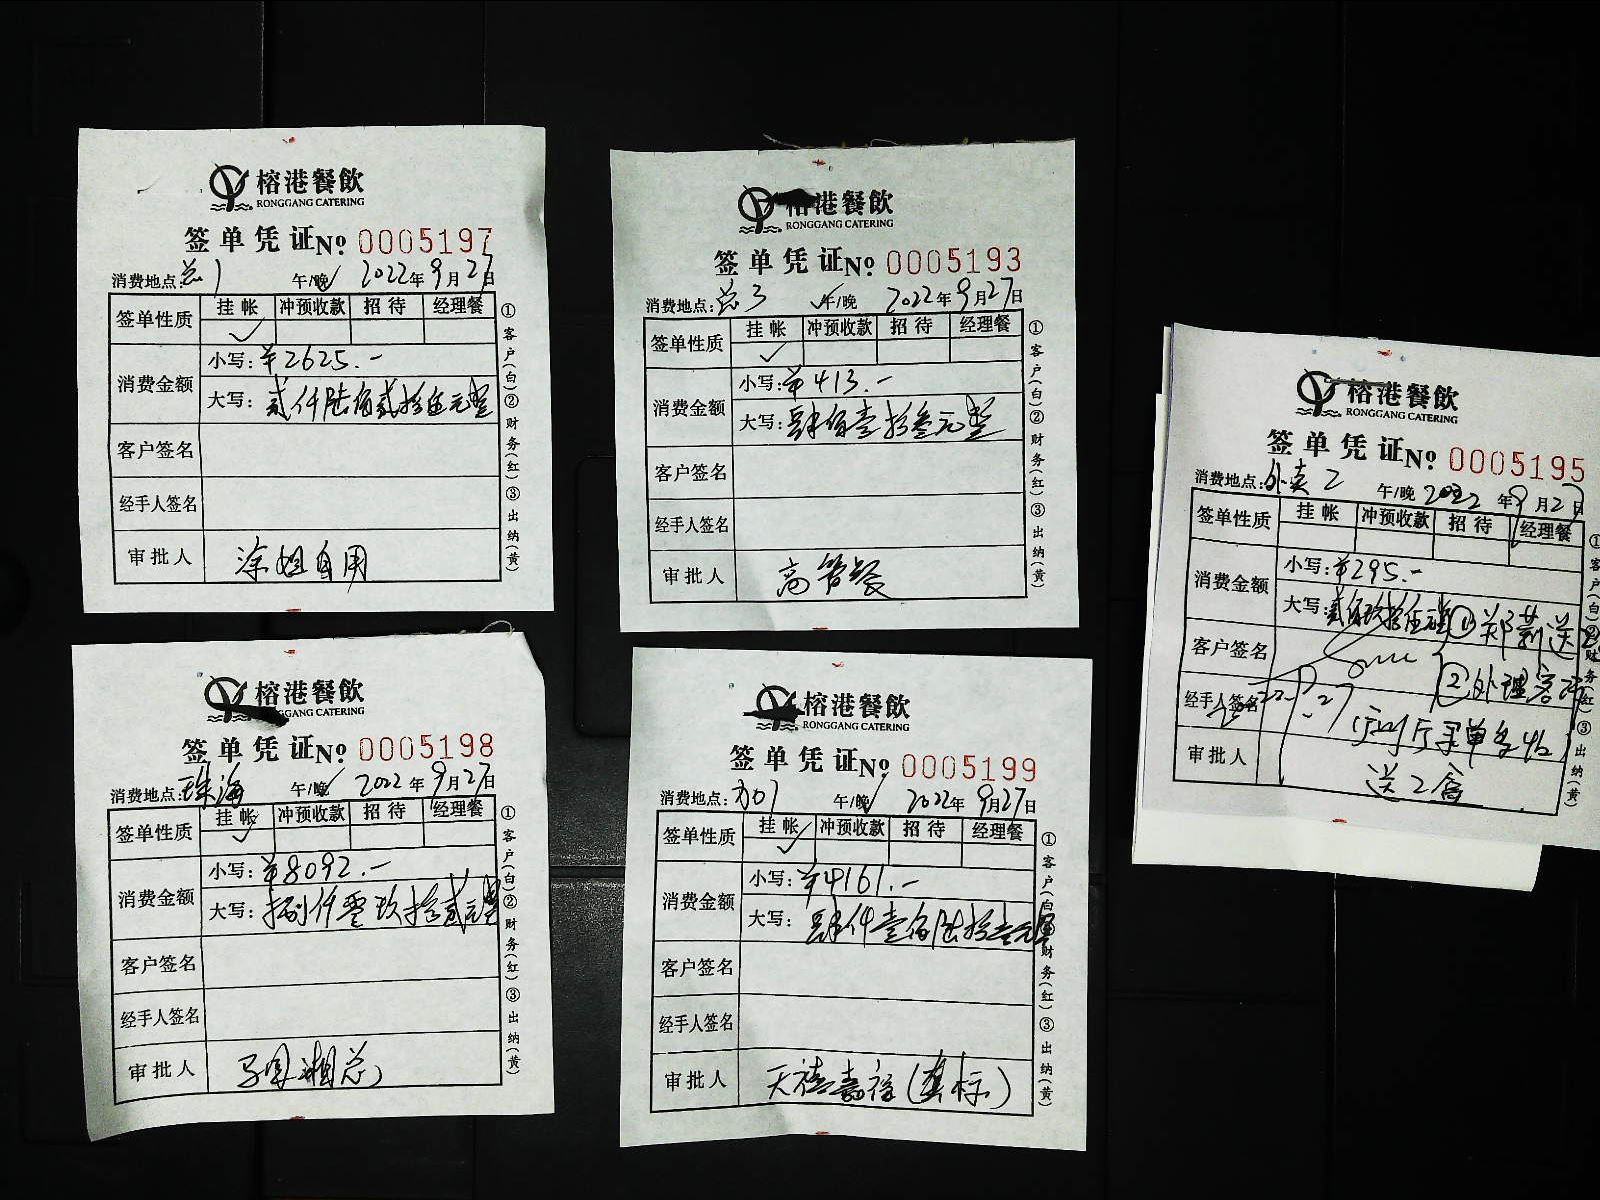 榕港餐飲
RONGGANG CATERING
签单凭证No 0005197
消费地点:总1 午/晚√ 2022年9月27日
签单性质 挂帐 冲预收款 招待 经理餐
√
消费金额 小写:¥2625.-
大写:贰仟陆佰贰拾伍元整
客户签名
经手人签名
审批人 涂姐自用
①客户(白)②财务(红)③出纳(黄)
港餐飲
RONGGANG CATERING
签单凭证No 0005193
消费地点:总3 √午/晚 2022年9月27日
签单性质 挂帐 冲预收款 招待 经理餐
√
消费金额 小写:¥413.-
大写:肆佰壹拾叁元整
客户签名
经手人签名
审批人 高管餐
①客户(白)②财务(红)③出纳(黄)
榕港餐飲
GANG CATERING
签单凭证No 0005198
消费地点:珠海 午/晚√ 2022年9月27日
签单性质 挂帐 冲预收款 招待 经理餐
√
消费金额 小写:¥8092.-
大写:捌仟零玖拾贰元整
客户签名
经手人签名
审批人 湘总
①客户(白)②财务(红)③出纳(黄)
榕港餐飲
RONGGANG CATERING
签单凭证No 0005199
消费地点: 午/晚√ 2022年9月27日
签单性质 挂帐 冲预收款 招待 经理餐
√
消费金额 小写:¥4161.-
大写:肆仟壹佰陆拾壹元整
客户签名
经手人签名
审批人 天禧嘉福
①客户(白) 财务(红)③出纳(黄)
榕港餐飲
RONGGANG CATERING
签单凭证No 0005195
消费地点:外卖2 午/晚 2022年9月27日
签单性质 挂帐 冲预收款 招待 经理餐
消费金额 小写:¥295.-
大写:贰佰玖拾伍元整 ①郑莉送
客户签名 ②处理客
经手人签名
审批人 送2窝
①客户(白)②财务(红)③出纳(黄)